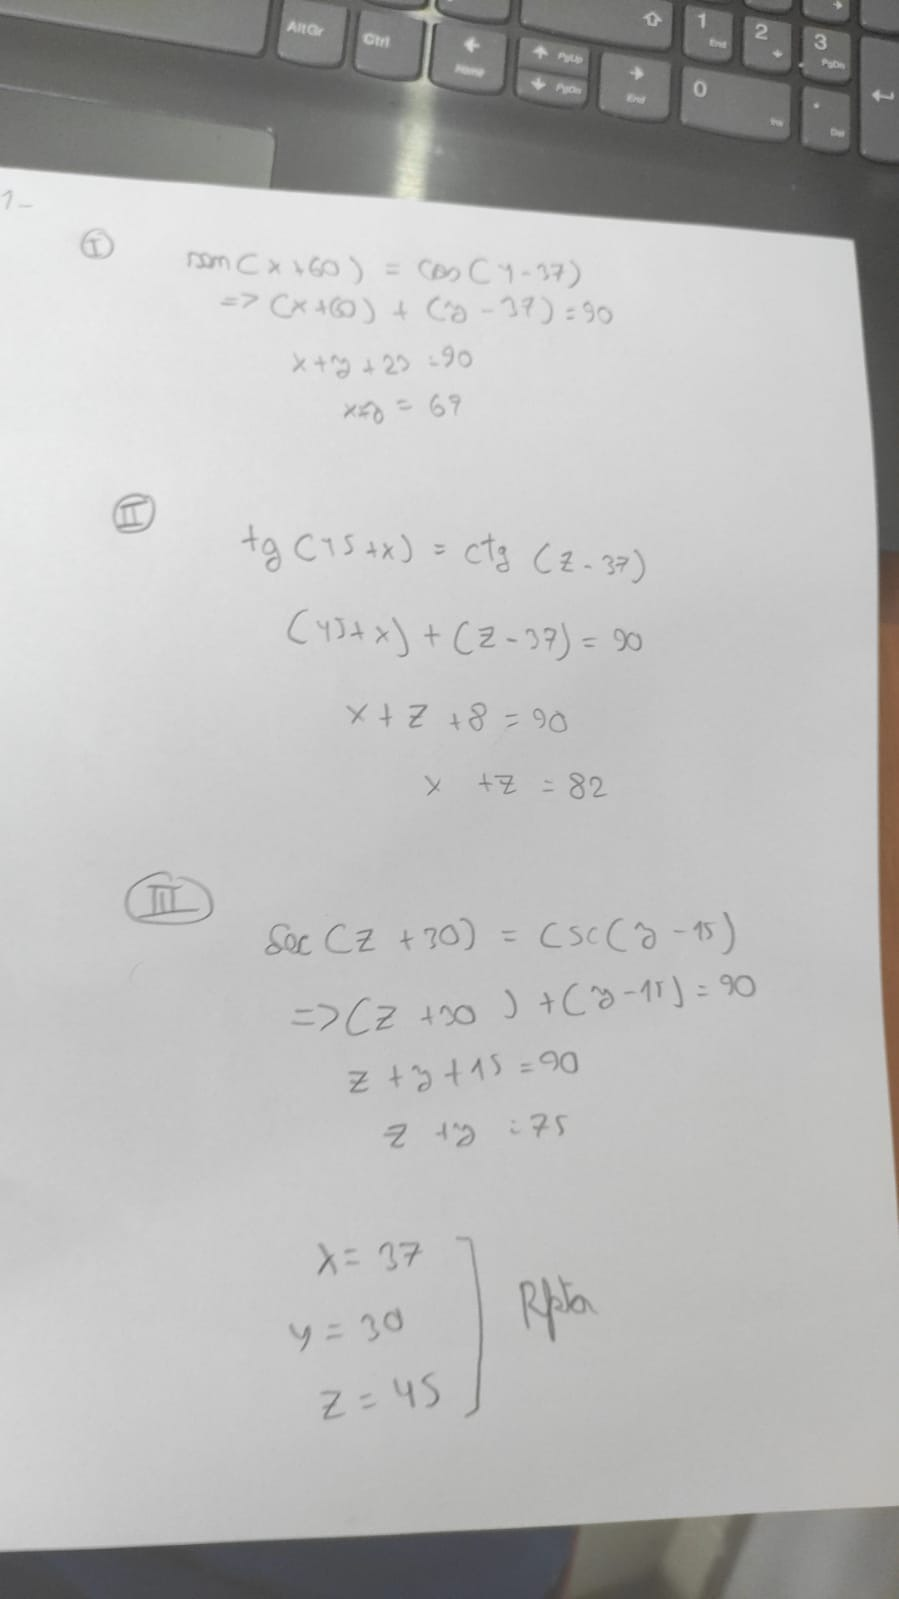 AltGr
Ctrl
Home
PgUp
PgDn
End
1
End
2
3
PgDn
0
Ins
.
Del
1-
I
sen(x+60) = cos(y-37)
=> (x+60) + (y-37)=90
x+y+23=90
x+y = 67
II
tg(45+x) = ctg (z-37)
(45+x)+(z-37)=90
x+z+8=90
x +z = 82
III
Sec(z+30) = Csc(y-15)
=>(z+30)+(y-15)=90
z+y+15=90
z+y=75
x=37
y=30
Rpta
z=45